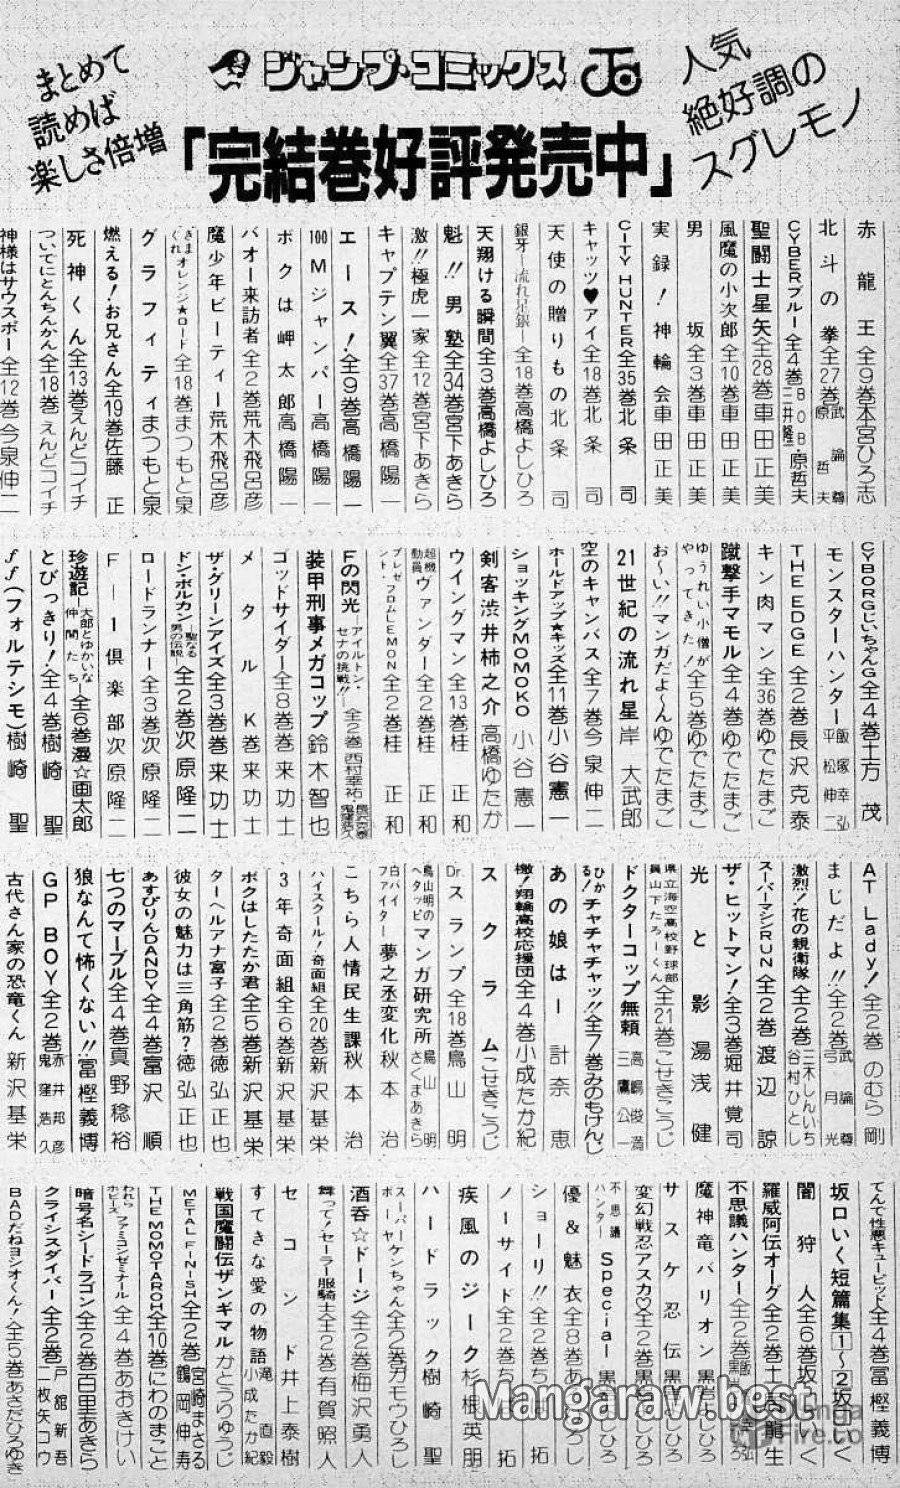 まとめて
読めば
楽しさ倍増
ジャンプ・コミックス
人気
絶好調の
スグレモノ
「完結巻好評発売中」
赤龍王全9巻本宮ひろ志
北斗の拳全27巻武論尊 原哲夫
CYBERブルー全4巻BOB・原哲夫 三井隆一
聖闘士星矢全28巻車田正美
風魔の小次郎全10巻車田正美
男坂全3巻車田正美
実録!神輪会車田正美
CITY HUNTER全35巻北条司
キャッツ♥アイ全18巻北条司
天使の贈りもの北条司
銀牙―流れ星銀―全18巻高橋よしひろ
天翔ける瞬間全3巻高橋よしひろ
魁!!男塾全34巻宮下あきら
激!!極虎一家全12巻宮下あきら
キャプテン翼全37巻高橋陽一
エース!全9巻高橋陽一
100Mジャンパー高橋陽一
ボクは岬太郎高橋陽一
バオー来訪者全2巻荒木飛呂彦
魔少年ビーティー荒木飛呂彦
きまぐれオレンジ★ロード全18巻まつもと泉
グラフィティまつもと泉
燃える!お兄さん全19巻佐藤正
死神くん全13巻えんどコイチ
ついでにとんちんかん全18巻えんどコイチ
神様はサウスポー全12巻今泉伸二
CYBORGじいちゃんG全4巻土方茂
モンスターハンター飯塚幸弘 平松伸二
THE EDGE全2巻長沢克泰
キン肉マン全36巻ゆでたまご
蹴撃手マモル全4巻ゆでたまご
ゆうれい小僧がやってきた!全5巻ゆでたまご
お〜い!!マンガだよ〜んゆでたまご
21世紀の流れ星岸大武郎
空のキャンバス全7巻今泉伸二
ホールドアップ★キッズ全11巻小谷憲一
ショッキングMOMOKO小谷憲一
剣客渋井柿之介高橋ゆたか
ウイングマン全13巻桂正和
超機動員ヴァンダー全2巻桂正和
プレゼント・フロムLEMON全2巻桂正和
Fの閃光―アイルトン・セナの挑戦!!―全2巻西村幸祐・鬼窪浩久
装甲刑事メガコップ鈴木智也
ゴッドサイダー全8巻巻来功士
メタルK巻来功士
ザ・グリーンアイズ全3巻巻来功士
ドン・ボルカン―聖なる男の伝説―全2巻次原隆二
ロードランナー全3巻次原隆二
F―1倶楽部次原隆二
珍遊記―太郎とゆかいな仲間たち―全6巻漫☆画太郎
とびっきり!全4巻樹崎聖
ff(フォルテシモ)樹崎聖
AT Lady!全2巻のむら剛
まじだよ!!全2巻武論尊 弓月光
激烈!花の親衛隊全2巻三木しんいち 谷村ひとし
スーパーマシンRUN全2巻渡辺諒
ザ・ヒットマン!全3巻堀井覚司
光と影湯浅健
県立海空高校野球部員山下たろーくん全21巻こせきこうじ
ドクターコップ無頼高嶋俊満 三鷹公一
ひかる!チャチャチャッ!!全7巻みのもけんじ
あの娘は!計奈恵
檄!翔輪高校応援団全4巻小成たか紀
スクラムこせきこうじ
Dr.スランプ全18巻鳥山明
鳥山明のヘタッピマンガ研究所鳥山明 さくまあきら
白バイファイター夢之丞変化秋本治
こちら人情民生課秋本治
ハイスクール!奇面組全20巻新沢基栄
3年奇面組全6巻新沢基栄
ボクはしたたか君全5巻新沢基栄
ターヘルアナ富子全2巻徳弘正也
彼女の魅力は三角筋?徳弘正也
あすぴりんDANDY全4巻富沢順
七つのマーブル全4巻真野稔裕
狼なんて怖くない!!冨樫義博
GP BOY全2巻赤井邦彦 鬼窪浩久
古代さん家の恐竜くん新沢基栄
てんで性悪キューピッド全4巻冨樫義博
坂口いく短篇集1〜2坂口いく
闇狩人全6巻坂口いく
羅威阿伝オーグ全2巻土呂龍生
不思議ハンター全2巻飯
魔神竜バリオン黒岩よしひろ
サスケ忍伝黒岩よしひろ
変幻戦忍アスカ♡全2巻黒岩よしひろ
不思議ハンターSpecial黒岩よしひろ
優&魅衣全8巻あ
ショーリ!!全2巻
ノーサイド全2巻ち 拓
疾風のジーク杉根英朋
ハードラック樹崎聖
スーパーボーイヤケンちゃん全2巻ガモウひろし
酒呑☆ドージ全2巻梅沢勇人
舞って!セーラー服騎士全2巻有賀照人
セコンド井上泰樹
すてきな愛の物語滝直毅 小成たか紀
戦国魔闘伝ザンギマルかとうりゅうじ
METAL FINISH全2巻宮崎まさる 鶴岡伸寿
THE MOMOTAROH全10巻にわのまこと
われらホビーズファミコンゼミナール全4巻あおきけい
暗号名シードラゴン全2巻百里あきら
クライシスダイバー全2巻戸舘新吾 一枚矢コウ
BADだねヨシオくん!全5巻あさだひろゆき
Mangaraw.best
Manga
Fire.to